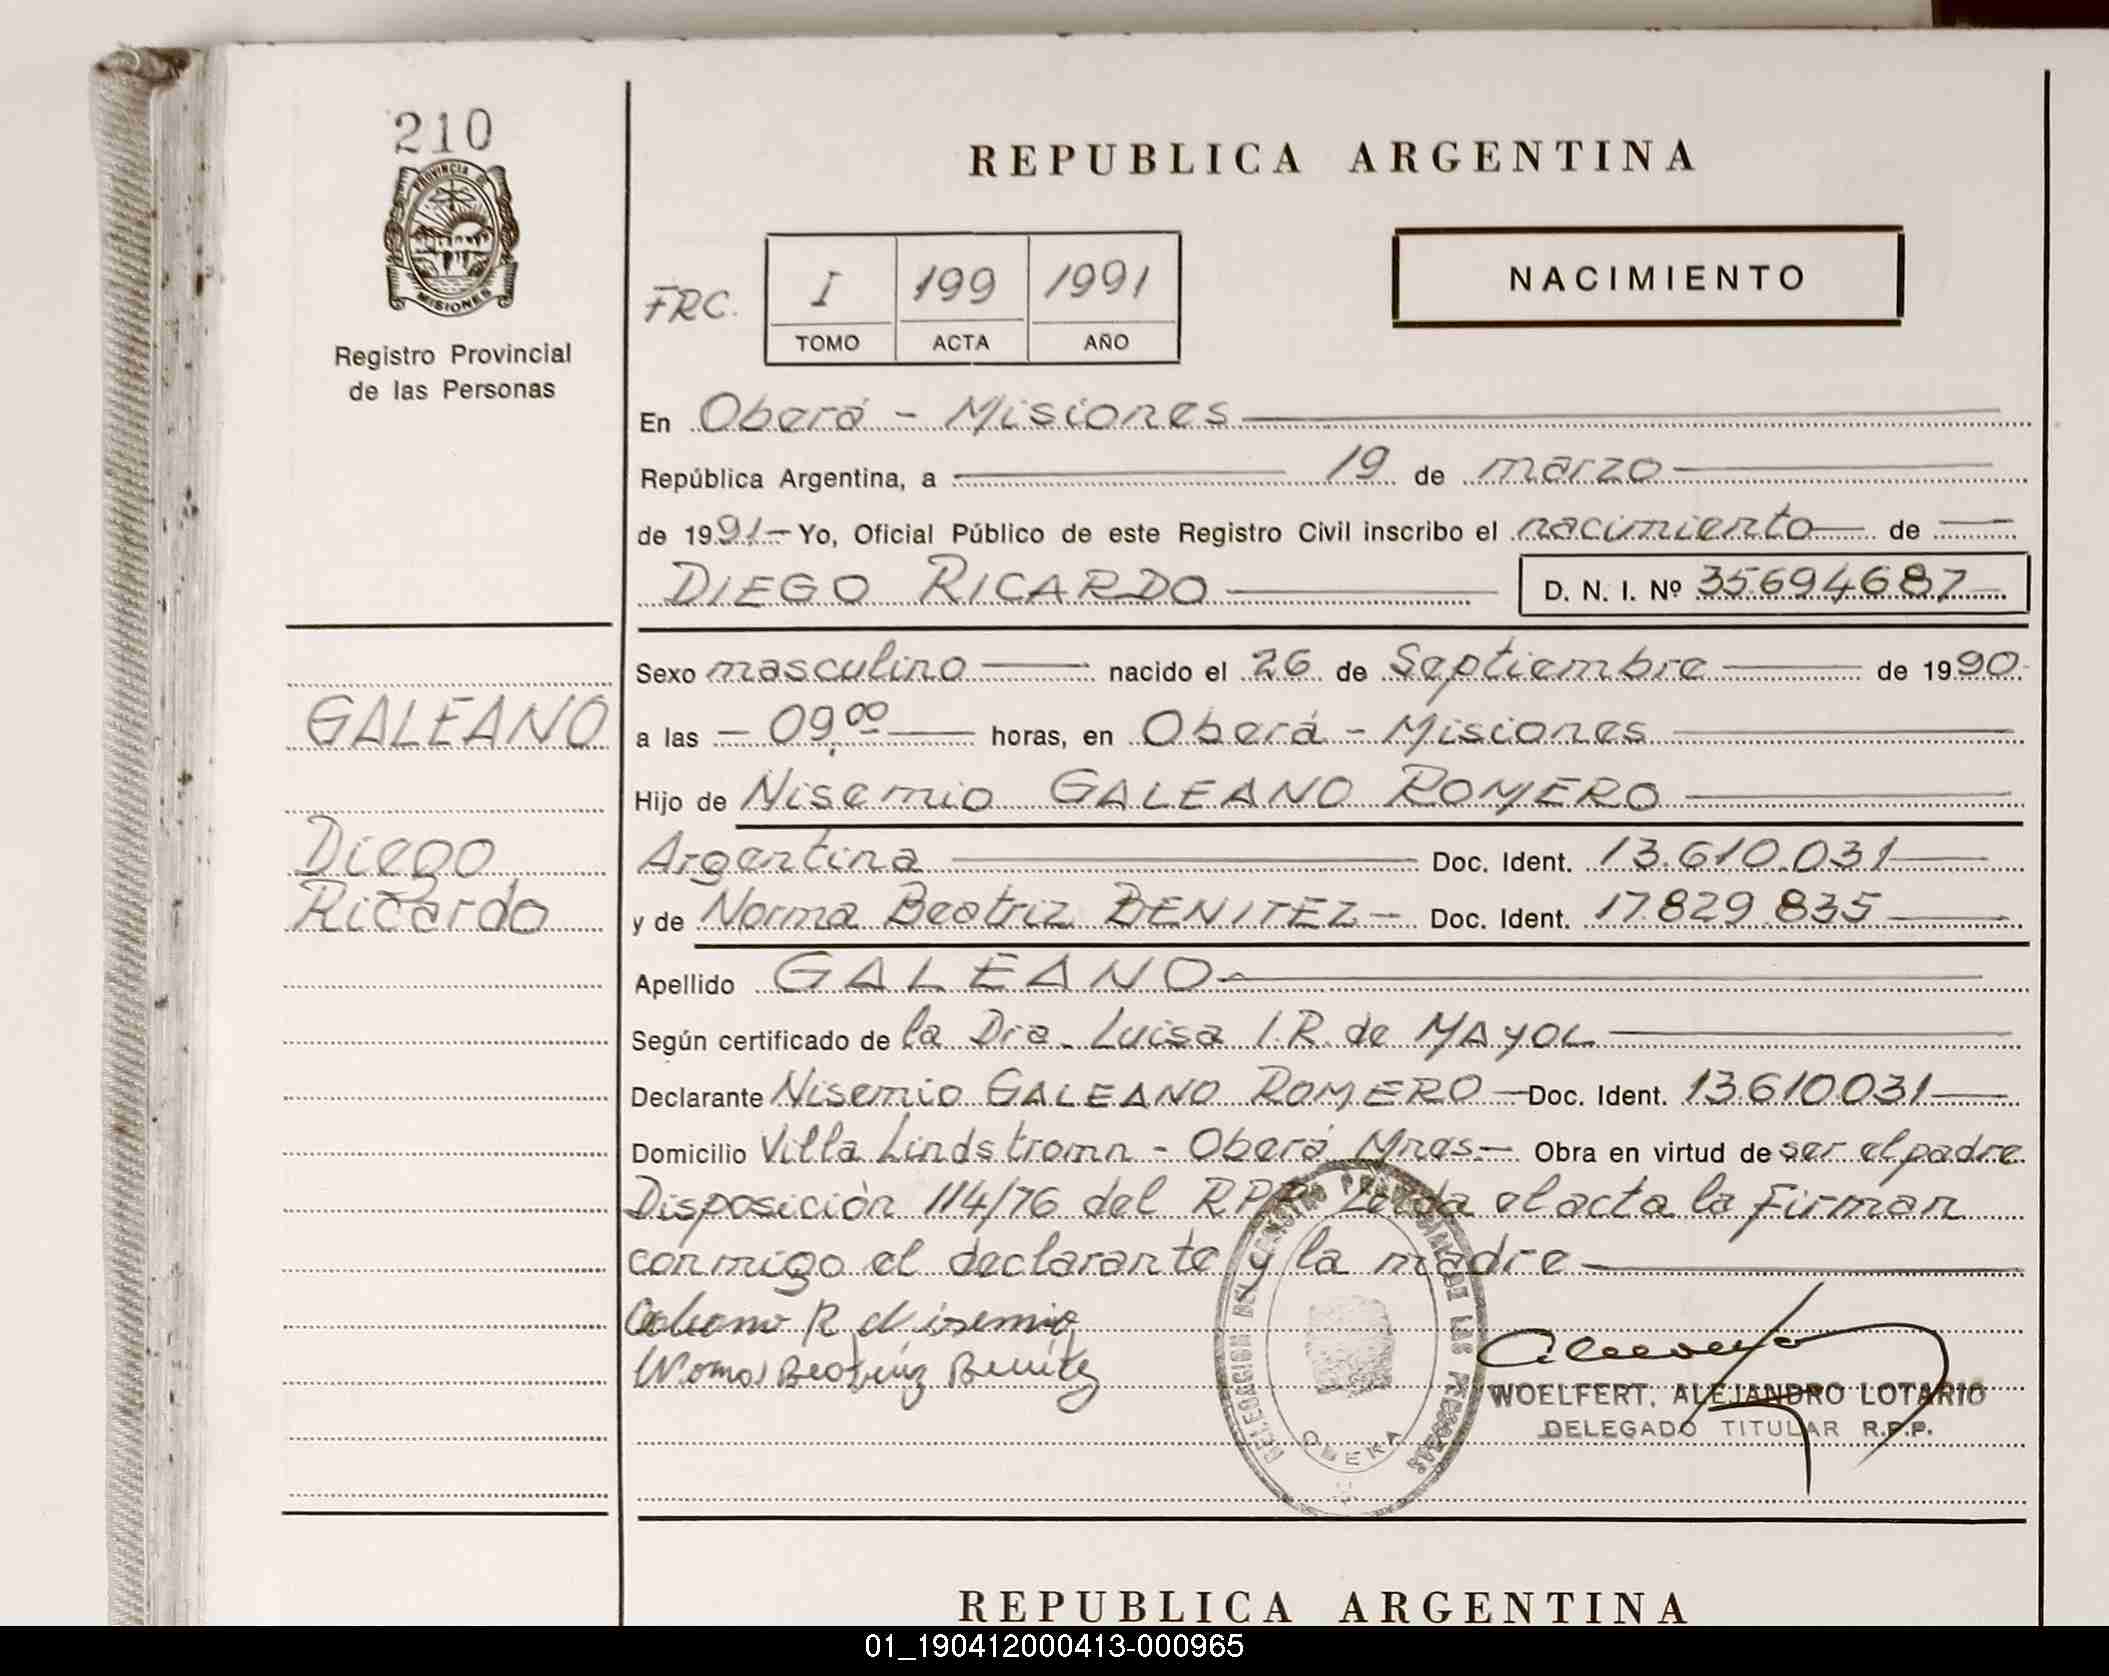 210
PROVINCIA DE
MISIONES
Registro Provincial
de las Personas
GALEANO
Diego
Ricardo
REPUBLICA ARGENTINA
FRC. I 199 1991
TOMO ACTA AÑO
NACIMIENTO
En Oberá - Misiones
República Argentina, a 19 de marzo
de 1991- Yo, Oficial Público de este Registro Civil inscribo el nacimiento de
DIEGO RICARDO D. N. I. Nº 35694687
Sexo masculino nacido el 26 de Septiembre de 1990
a las - 09,00 horas, en Oberá - Misiones
Hijo de Nisemio GALEANO ROMERO
Argentina Doc. Ident. 13.610.031
y de Norma Beatriz BENITEZ - Doc. Ident. 17.829.835
Apellido GALEANO
Según certificado de la Dra. Luisa I.R. de MAYOL
Declarante Nisemio GALEANO ROMERO - Doc. Ident. 13.610.031
Domicilio Villa Lindstromn - Oberá Mnes.- Obra en virtud de ser el padre
Disposición 114/76 del RPP Leida el acta la firman
conmigo el declarante y la madre
Galeano R Nisemio
Norma Beatriz Benitez
DELEGACION DEL REGISTRO PROVINCIAL DE LAS PERSONAS
OBERA
WOELFERT, ALEJANDRO LOTARIO
DELEGADO TITULAR R.P.P.
REPUBLICA ARGENTINA
01_190412000413-000965